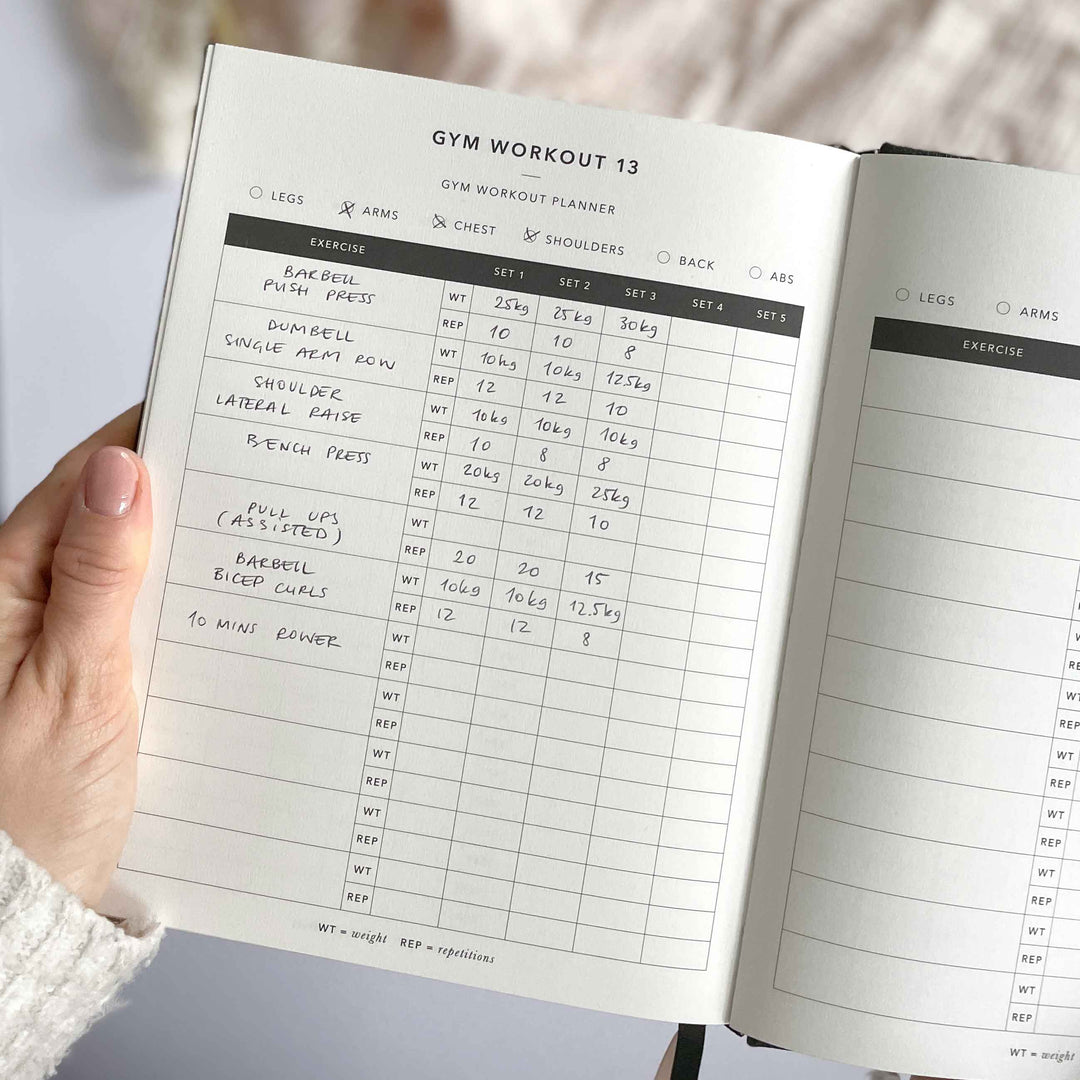 GYM WORKOUT 13
GYM WORKOUT PLANNER
LEGS ARMS CHEST SHOULDERS BACK ABS
EXERCISE SET 1 SET 2 SET 3 SET 4 SET 5
BARBELL
PUSH PRESS
WT 25kg 25kg 30kg
REP 10 10 8
DUMBELL
SINGLE ARM ROW
WT 10kg 10kg 12.5kg
REP 12 12 10
SHOULDER
LATERAL RAISE
WT 10kg 10kg 10kg
REP 10 8 8
BENCH PRESS
WT 20kg 20kg 25kg
REP 12 12 10
PULL UPS
(ASSISTED)
WT
REP 20 20 15
BARBELL
BICEP CURLS
WT 10kg 10kg 12.5kg
REP 12 12 8
10 MINS ROWER
WT
REP
WT
REP
WT
REP
WT
REP
WT
REP
WT = weight REP = repetitions
LEGS ARMS
EXERCISE
WT
REP
WT
REP
WT
REP
WT
REP
WT
REP
WT
REP
WT
REP
WT = weight